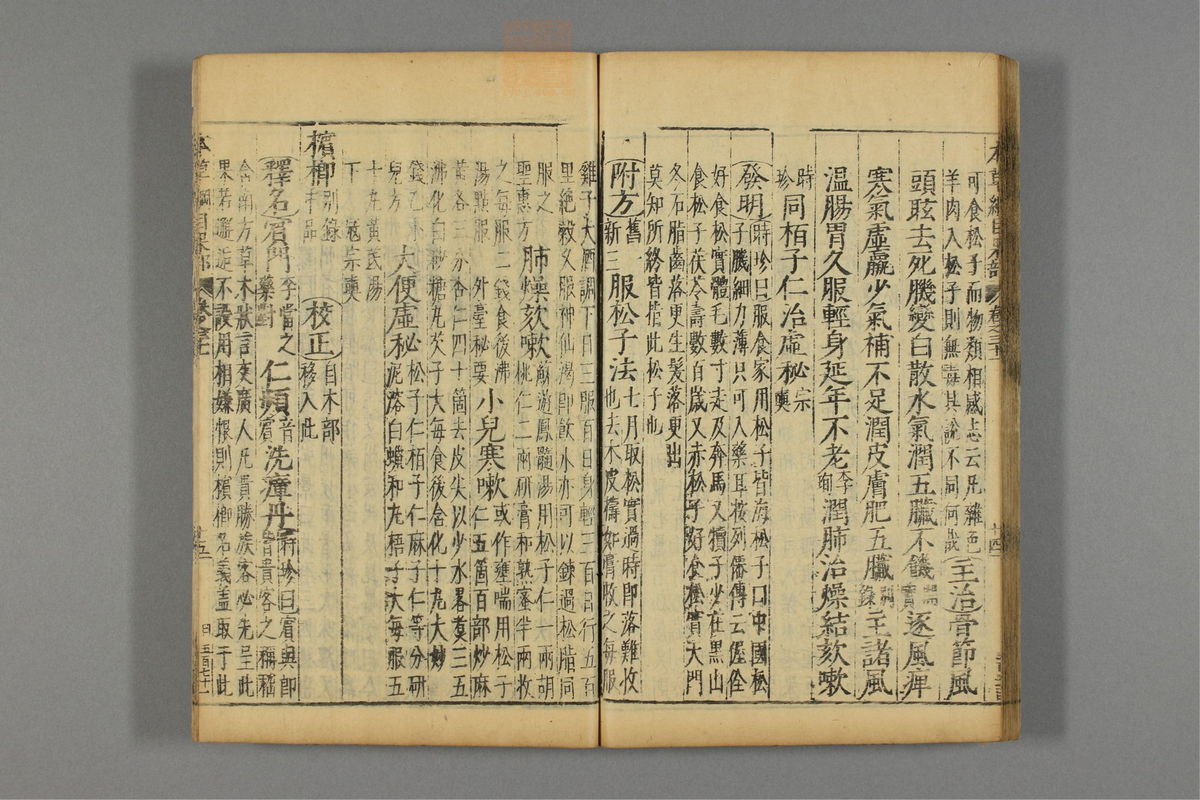 可食松子而物類相感志云凡雜色
羊肉入松子則無毒其說不同何哉
主治骨節風
頭眩去死肌變白散水氣潤五臟不饑開寶逐風痺
寒氣虛羸少氣補不足潤皮膚肥五臟別錄主諸風
溫腸胃久服輕身延年不老李珣潤肺治燥結欬嗽
時珍同栢子仁治虛秘宗奭
發明時珍曰服食家用松子皆海松子曰中國松
子肌細力薄只可入藥耳按列僊傳云偓佺
好食松實體毛數寸走及奔馬又犢子少在黑山
食松子茯苓壽數百歲又赤松子好食松實天門
冬石脂齒落更生髮落更出
莫知所終皆指此松子也
附方舊一新三服松子法七月取松實過時即落難收
也去木皮擣如膏收之每服
雞子大酒調下日三服百日身輕三百日行五百
里絕穀久服神仙渴即飲水亦可以鍊過松脂同
服之
聖惠方肺燥欬嗽蘇遊鳳髓湯用松子仁一兩胡
桃仁二兩研膏和熟蜜半兩收
之每服二錢食後沸
湯點服
外臺秘要小兒寒嗽或作壅喘用松子
仁五箇百部炒麻
黃各三分杏仁四十箇去皮尖以少水畧煑三五
沸化白砂糖丸芡子大每食後含化十丸大妙
錢乙小
兒方大便虛秘松子仁栢子仁麻子仁等分研
泥溶白蠟和丸梧子大每服五
十丸黃芪湯
下
寇宗奭
檳榔別錄中品校正自木部移入此
釋名賓門李當之藥對仁頻音賓洗瘴丹時珍曰賓與郎
皆貴客之稱稽
含南方草木狀言交廣人凡貴勝族客必先呈此
果若邂逅不設用相嫌恨則檳榔名義蓋取于此